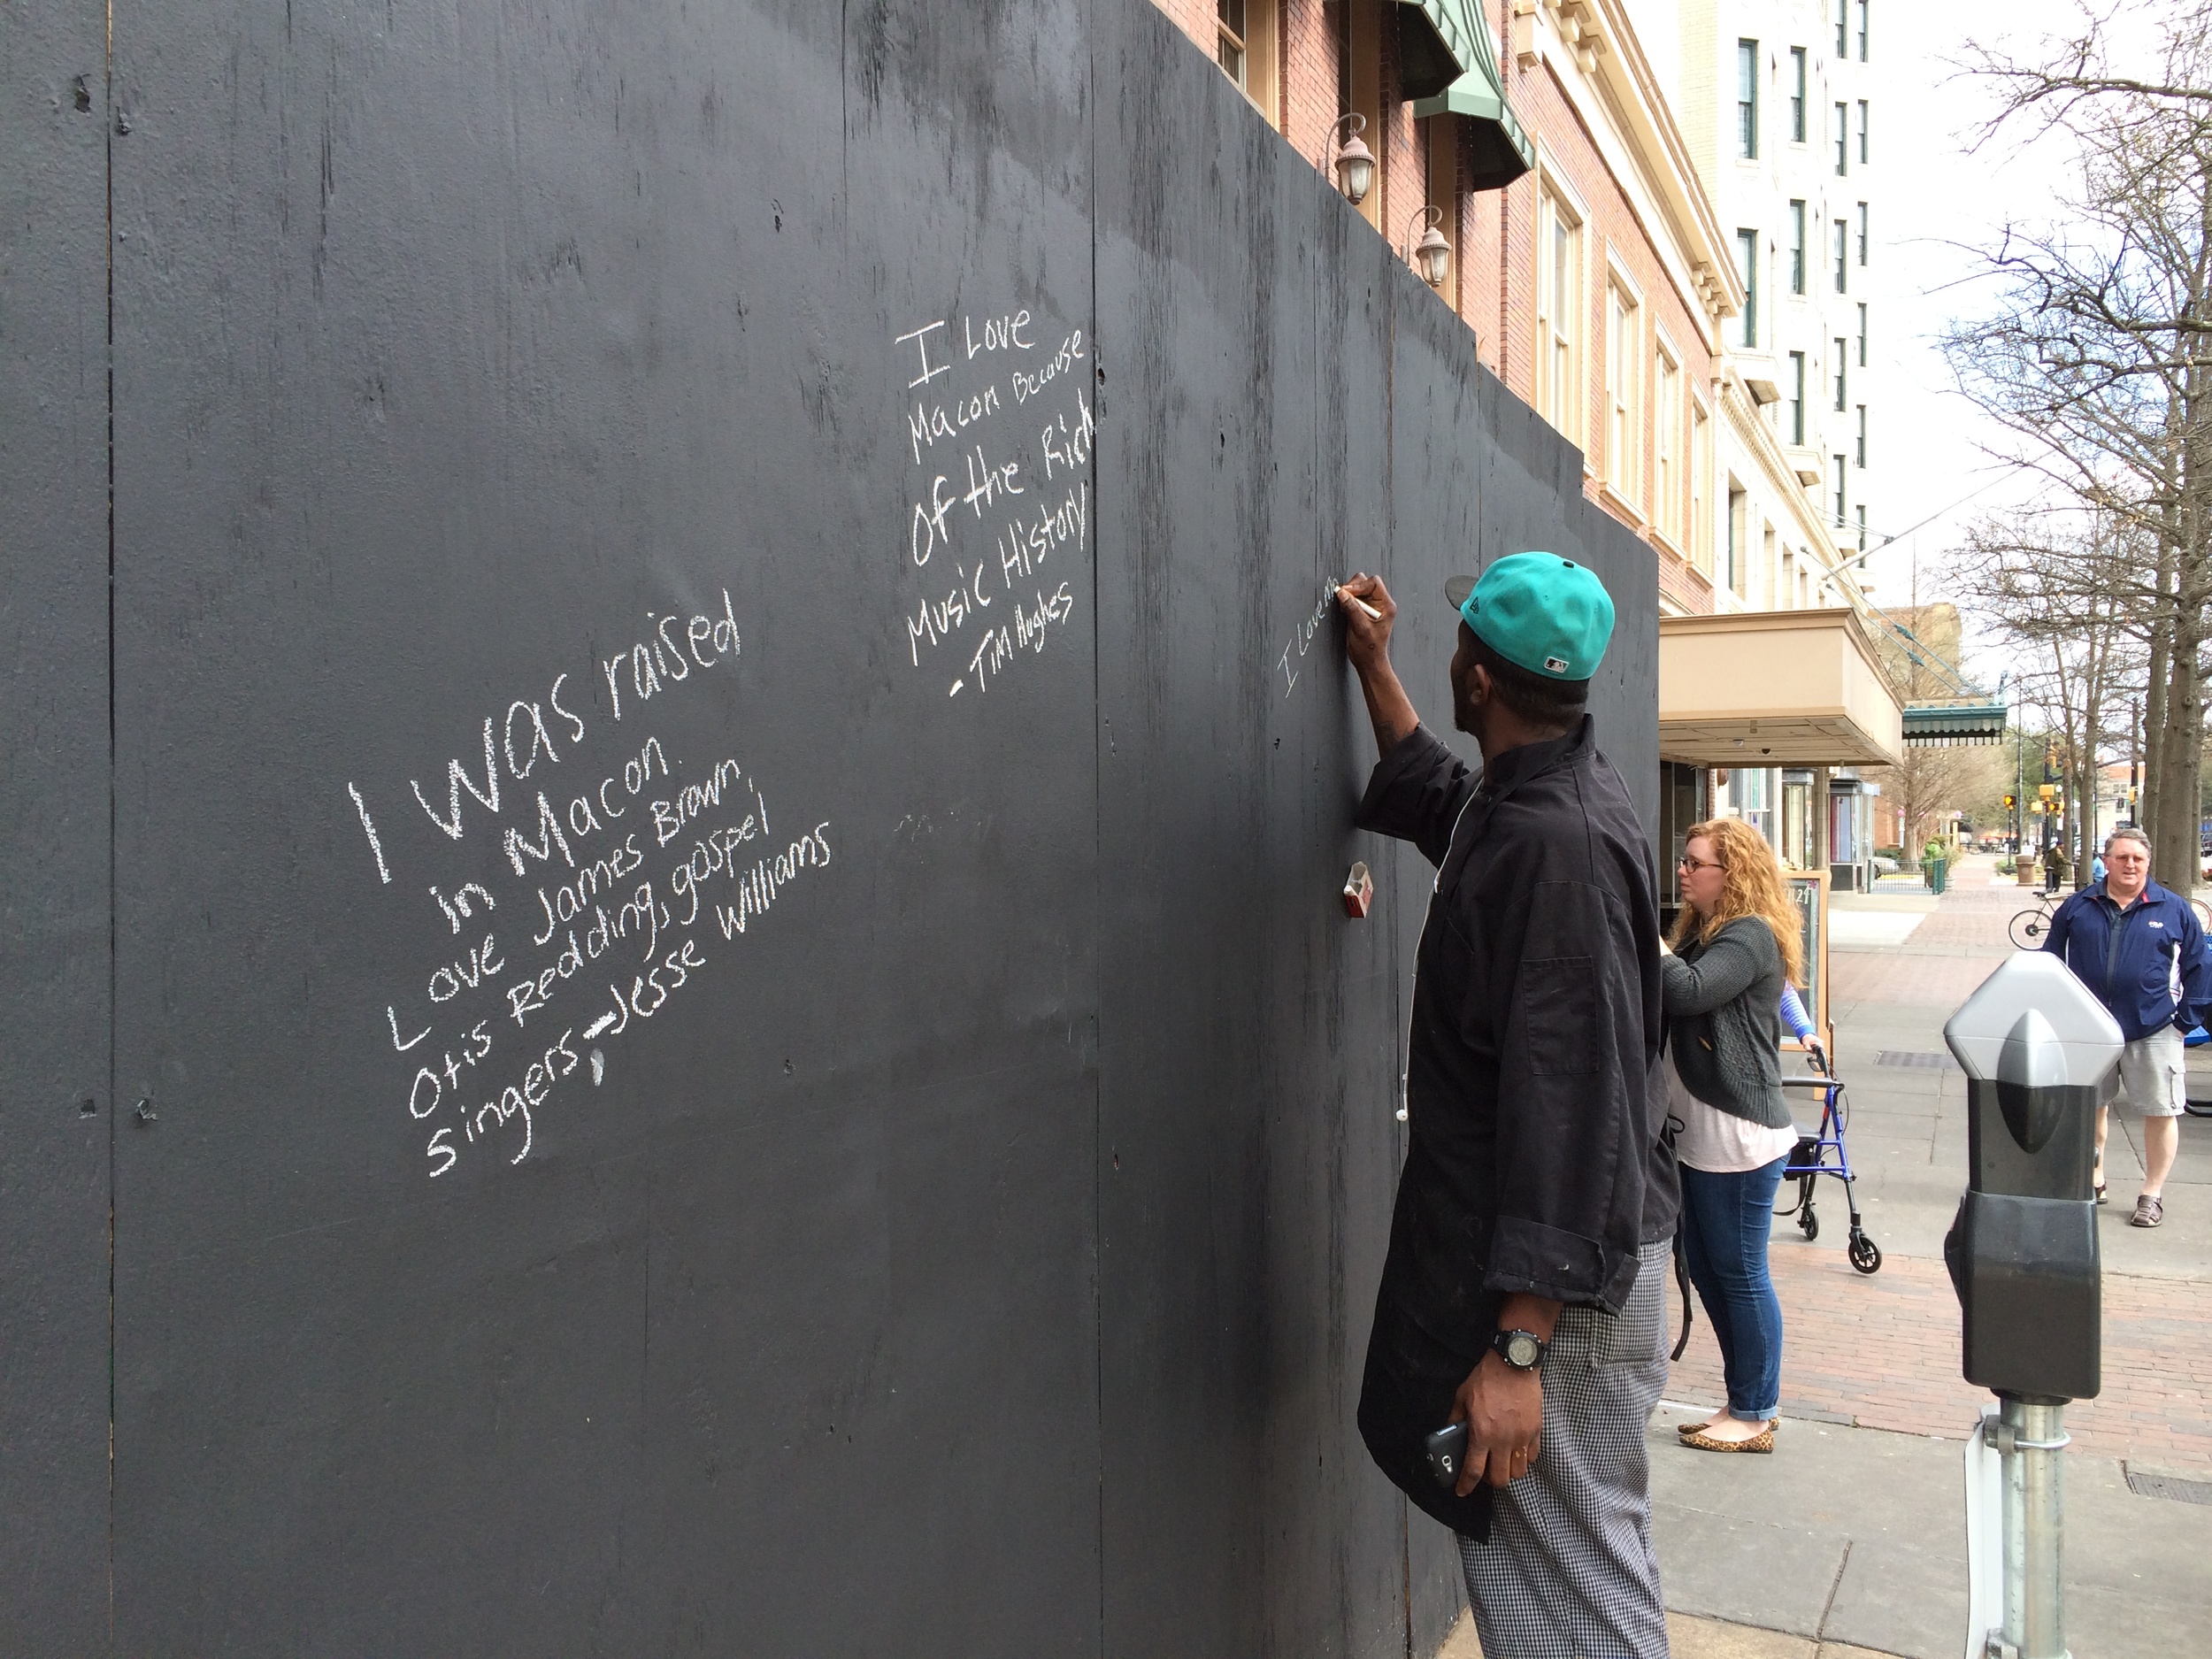 I Love
Macon Because
Of the Rich
Music History
- Tim Hughes
I was raised
in Macon.
Love James Brown,
Otis Redding, gospel
singers, - Jesse Williams
I Love Ma